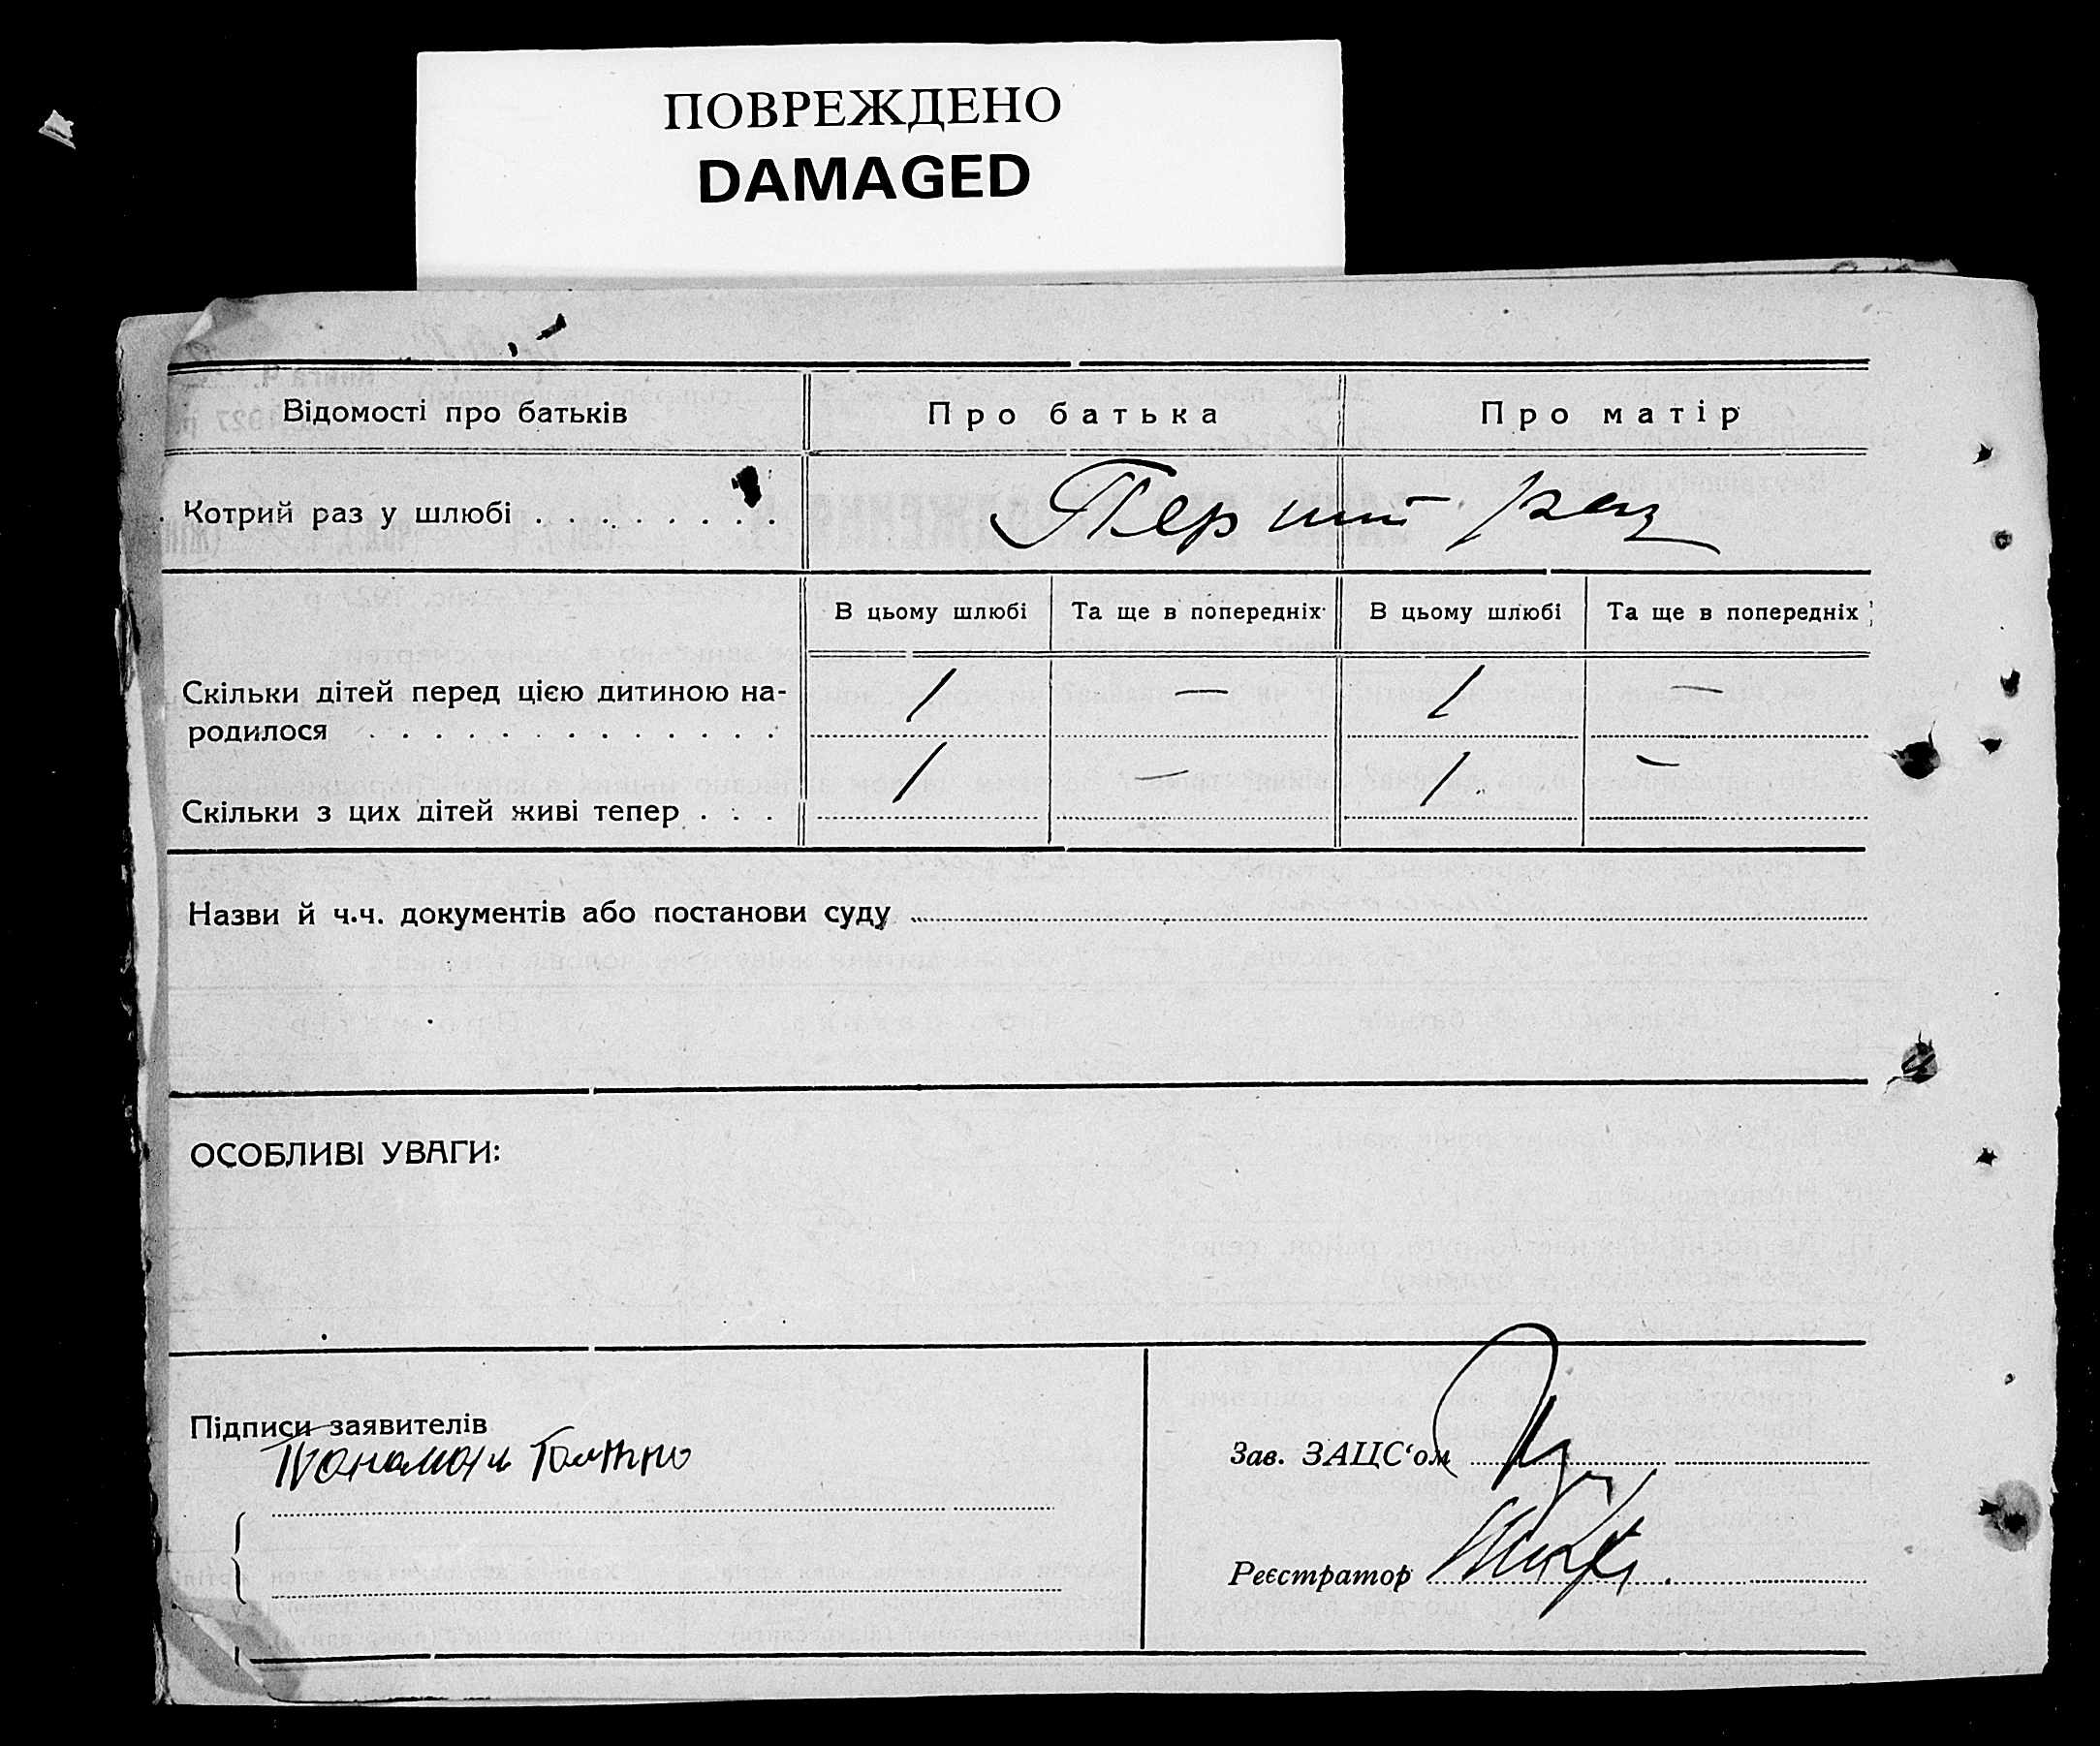 ПОВРЕЖДЕНО
DAMAGED
Відомості про батьків
Про батька
Про матір
Котрий раз у шлюбі . . . . . . . .
Перший раз
В цьому шлюбі
Та ще в попередніх
В цьому шлюбі
Та ще в попередніх
Скільки дітей перед цією дитиною на-
родилося . . . . . . . . . . . . .
1 — 1 —
Скільки з цих дітей живі тепер . . .
1 — 1 —
Назви й ч.ч. документів або постанови суду
ОСОБЛИВІ УВАГИ:
Підписи заявителів
Зав. ЗАЦС‘ом
Реєстратор